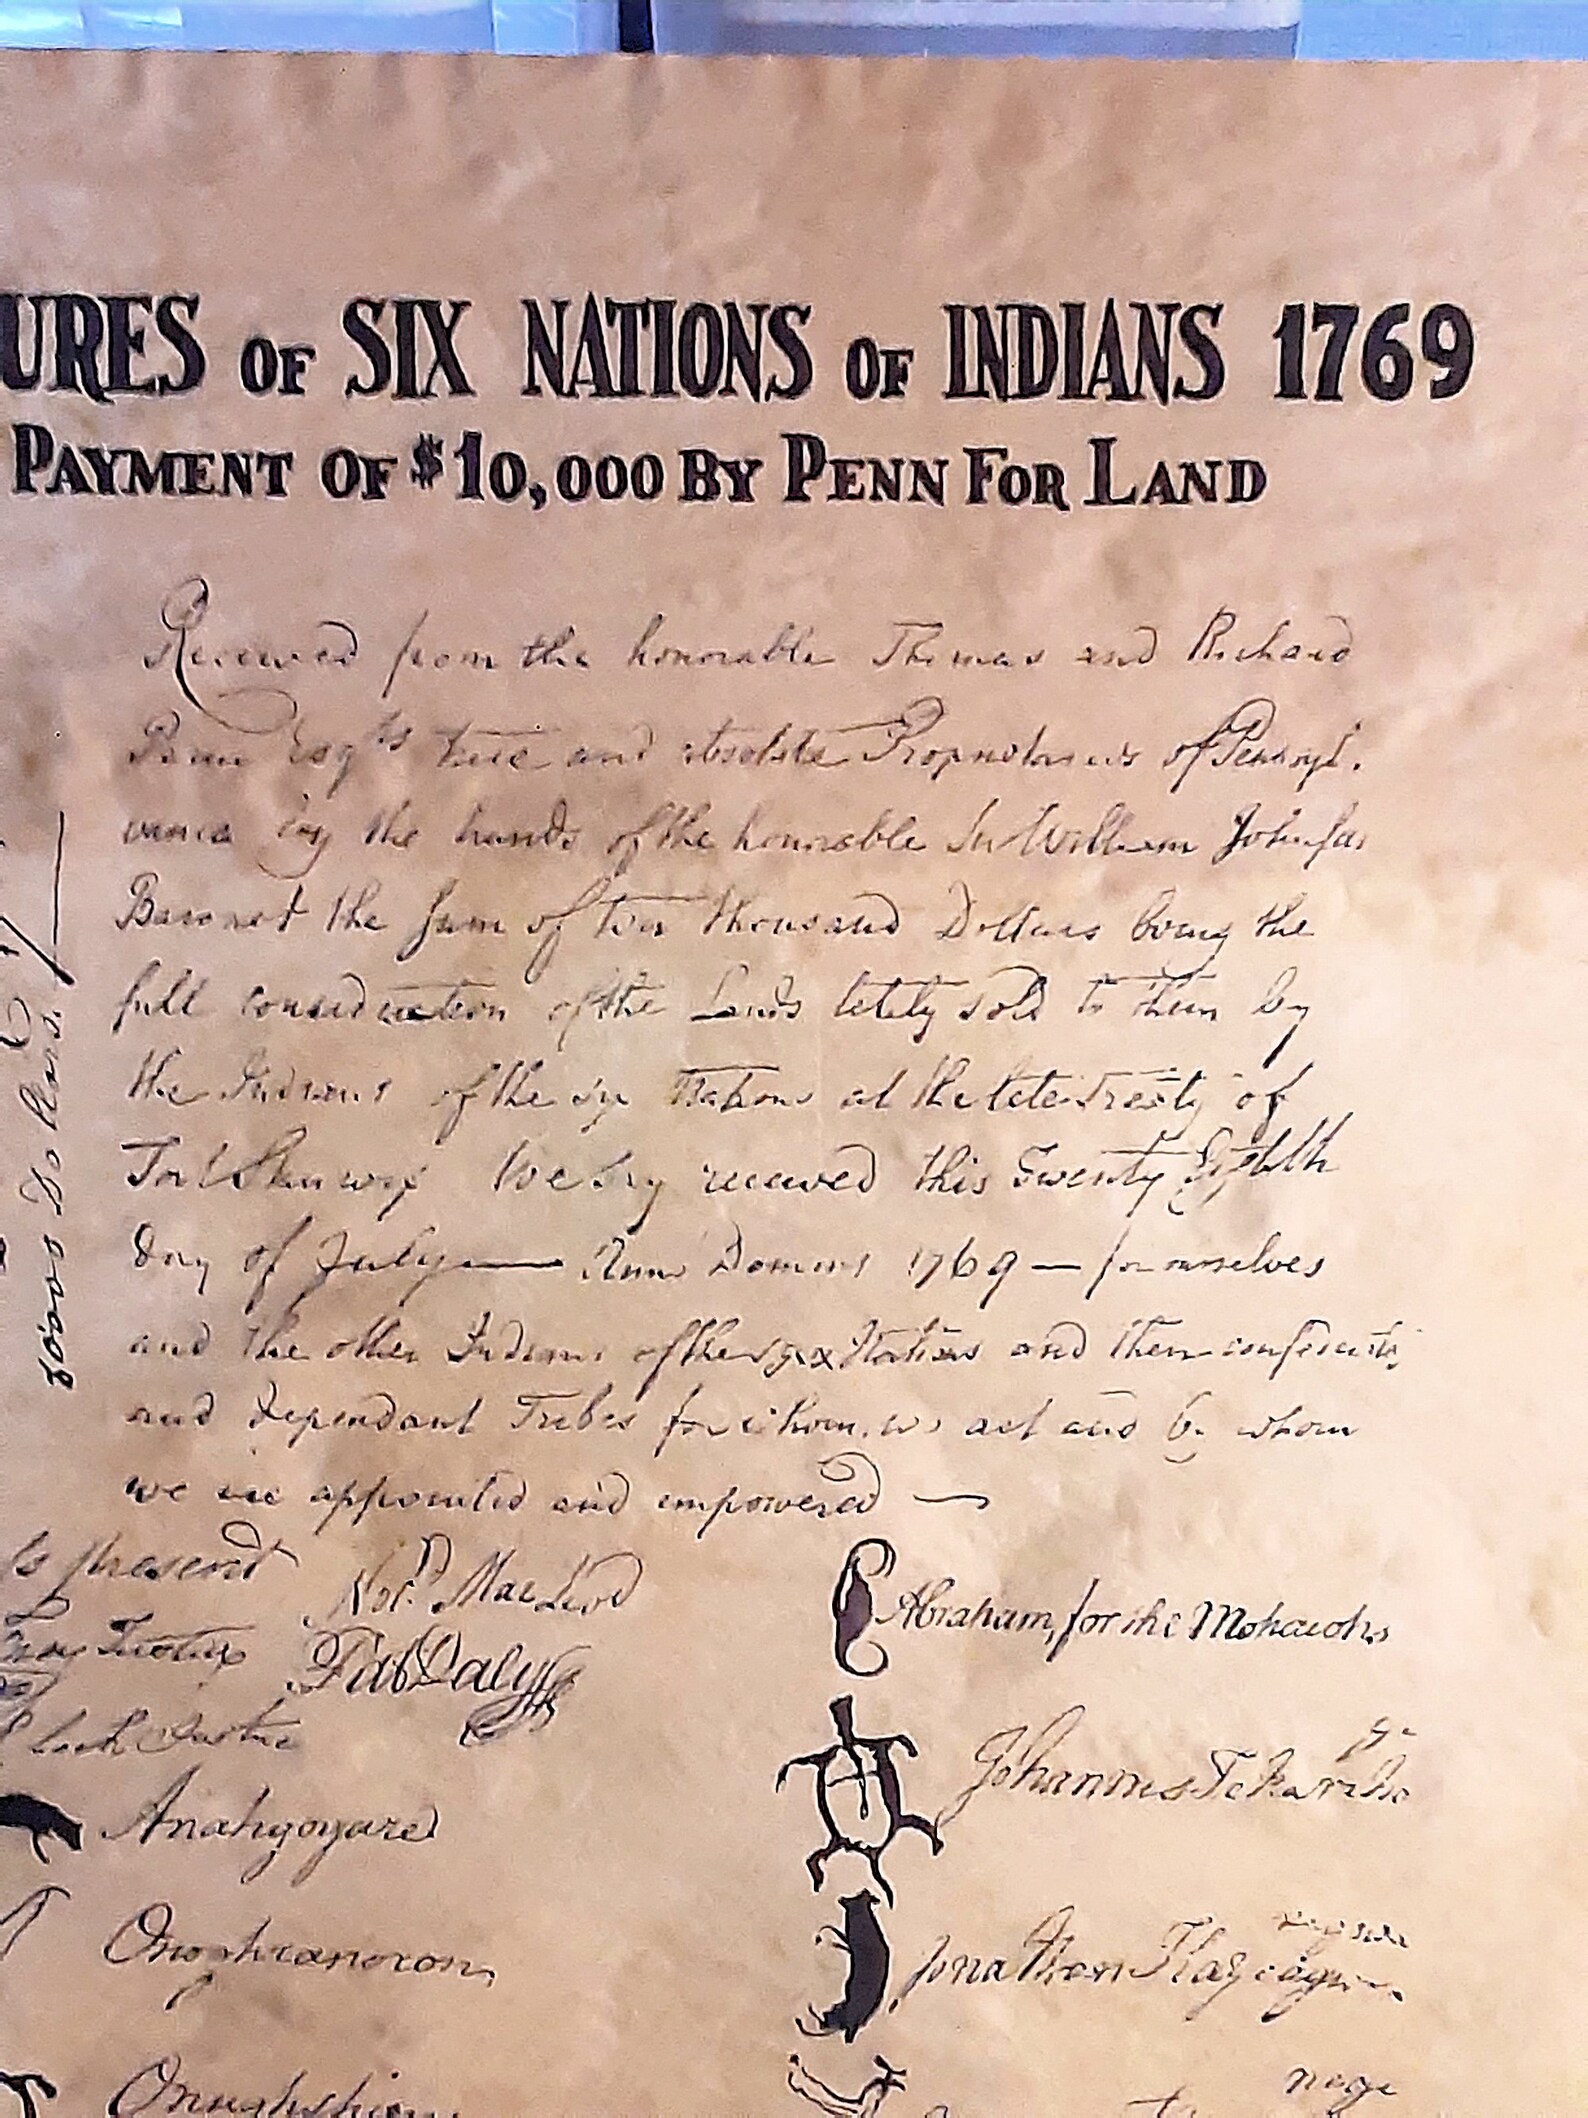 URES OF SIX NATIONS OF INDIANS 1769
PAYMENT OF $10,000 BY PENN FOR LAND
Received from the honorable Thomas and Richard
Penn Esqrs true and absolute Proprietaries of Pensyl.
vania by the hands of the honorable Sir William Johnson
Baronet the sum of ten thousand Dollars being the
full consideration of the Lands lately sold to them by
the Indians of the six Nations at the late Treaty of
Fort Stanwix We say received this Twenty Eighth
day of July — Anno Domini 1769 — for ourselves
and the other Indians of the six Nations and their confederates
and dependant Tribes for whom we act and by whom
we are appointed and empowered —
10000 Dollars.
present
MacLeod
Daly
Justice
Abraham, for the Mohawks
Johannes
Anahgogare
Jonathan
noge